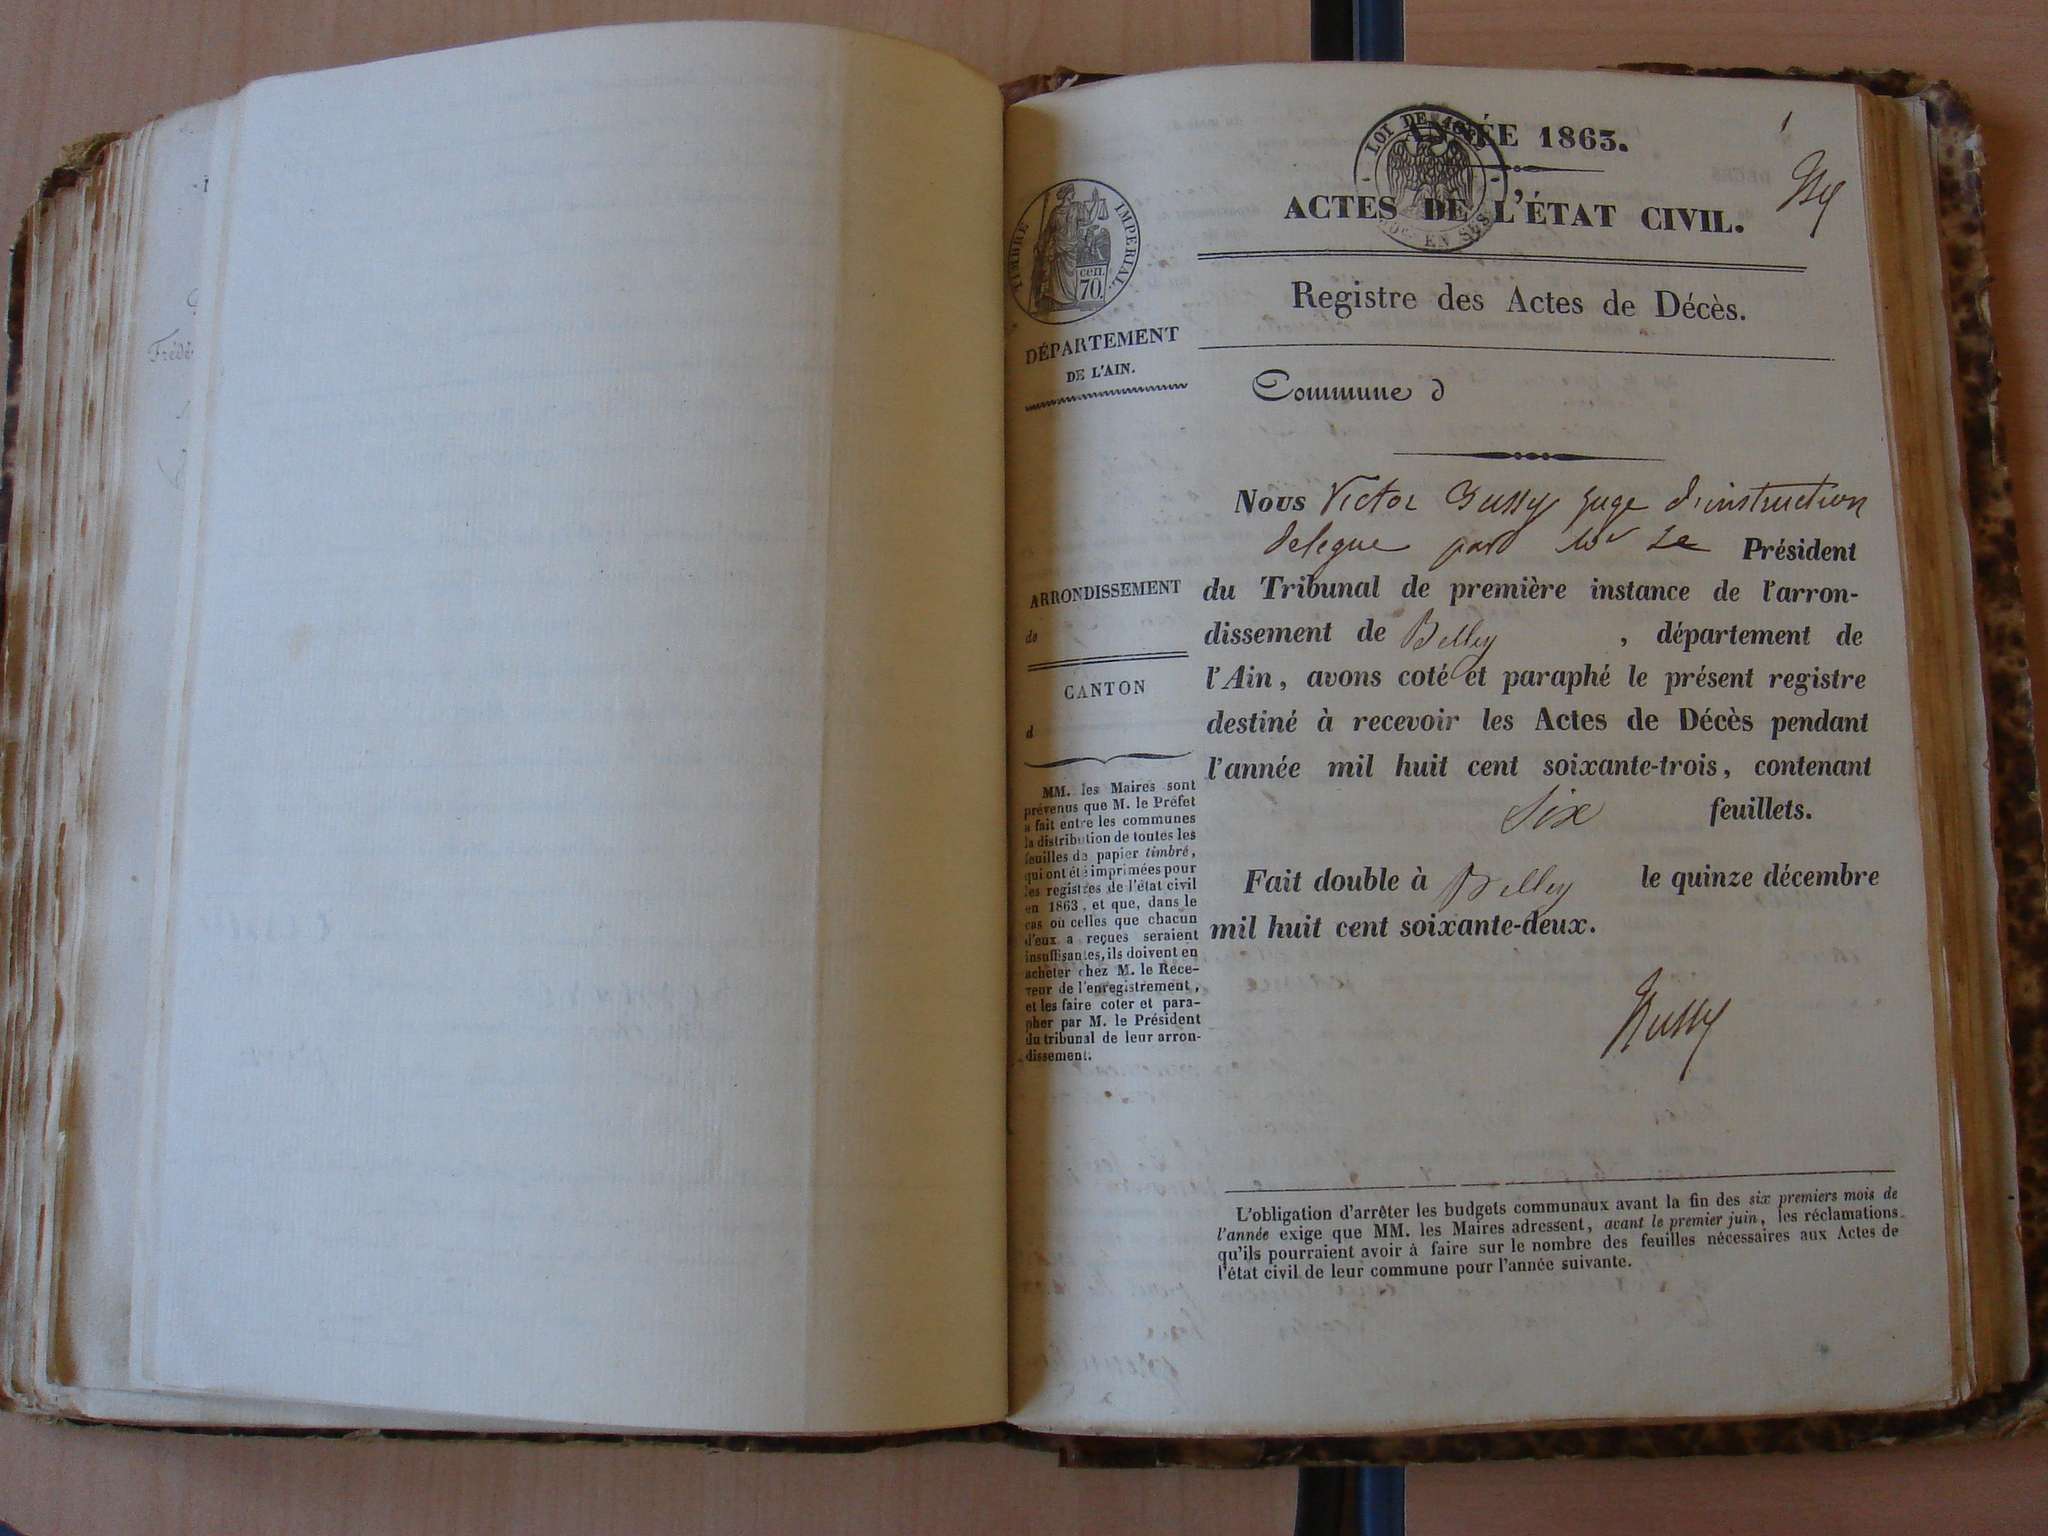 Frédé
LOI DE
Des EN SUS
1
ANNÉE 1863.
ACTES DE L'ÉTAT CIVIL.
TIMBRE IMPÉRIAL.
cen.
70.
Registre des Actes de Décès.
DÉPARTEMENT
DE L'AIN.
Commune d
Nous Victor Bussy juge d'instruction
delegue par Mr Le Président
du Tribunal de première instance de l'arron-
dissement de Belley , département de
l'Ain, avons coté et paraphé le présent registre
destiné à recevoir les Actes de Décès pendant
l'année mil huit cent soixante-trois, contenant
Six feuillets.
Fait double à Belley le quinze décembre
mil huit cent soixante-deux.
Bussy
ARRONDISSEMENT
de
CANTON
d
MM. les Maires sont
prévenus que M. le Préfet
a fait entre les communes
la distribution de toutes les
feuilles de papier timbré,
qui ont été imprimées pour
les registres de l'état civil
en 1863, et que, dans le
cas où celles que chacun
d'eux a reçues seraient
insuffisantes, ils doivent en
acheter chez M. le Rece-
veur de l'enregistrement,
et les faire coter et para-
pher par M. le Président
du tribunal de leur arron-
dissement.
L'obligation d'arrêter les budgets communaux avant la fin des six premiers mois de
l'année exige que MM. les Maires adressent, avant le premier juin, les réclamations
qu'ils pourraient avoir à faire sur le nombre des feuilles nécessaires aux Actes de
l'état civil de leur commune pour l'année suivante.